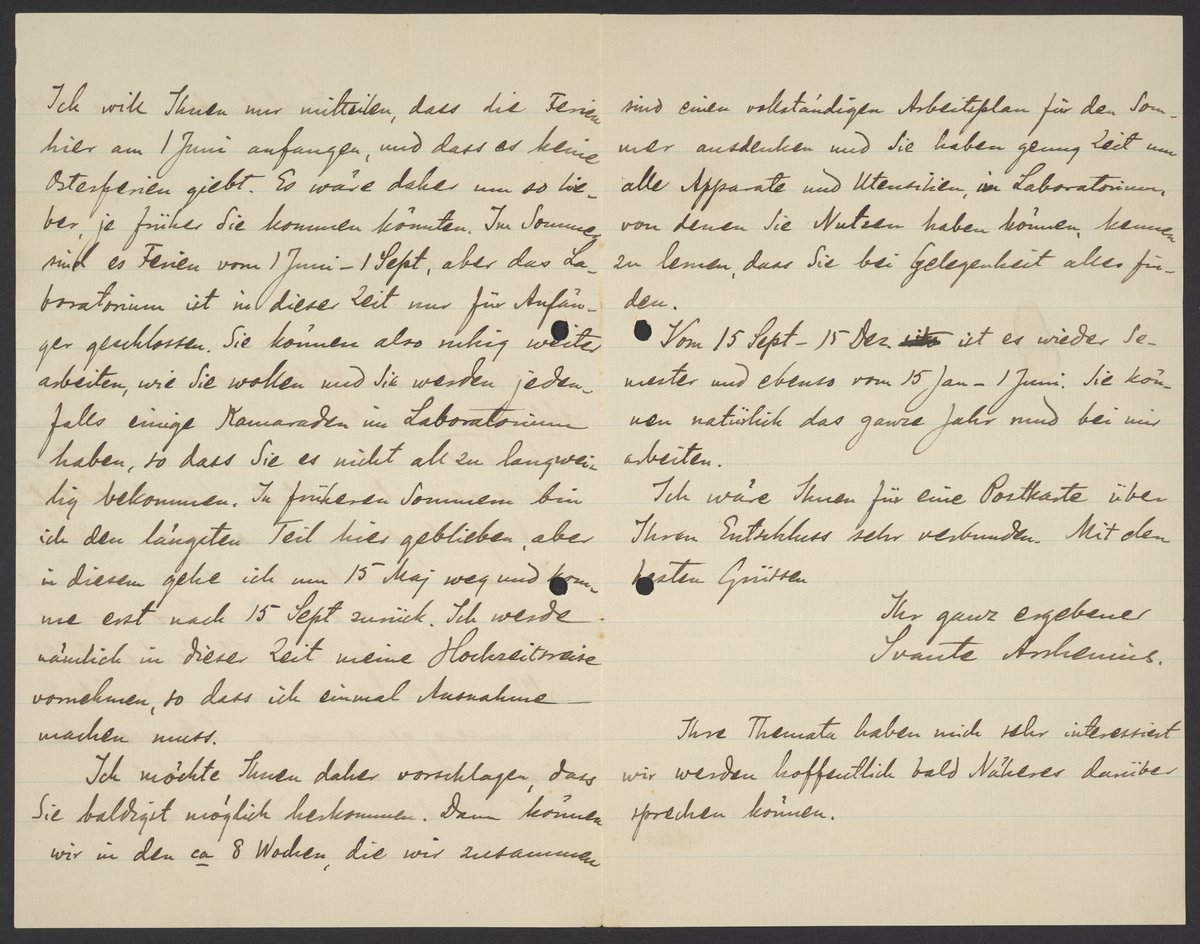 Ich will Ihnen nur mitteilen, dass die Ferien
hier am 1 Juni anfangen, und dass es keine
Osterferien giebt. Es wäre daher um so lie-
ber, je früher Sie kommen könnten. Im Sommer
sind es Ferien vom 1 Juni – 1 Sept, aber das La-
boratorium ist in dieser Zeit nur für Anfän-
ger geschlossen. Sie können also ruhig weiter
arbeiten, wie Sie wollen und Sie werden jeden-
falls einige Kamaraden im Laboratorium
haben, so dass Sie es nicht all zu langwei-
lig bekommen. In früheren Sommern bin
ich den längsten Teil hier geblieben, aber
in diesem gehe ich um 15 Maj weg und kom-
me erst nach 15 Sept zurück. Ich werde
nämlich in dieser Zeit meine Hochzeitsreise
vornehmen, so dass ich einmal Ausnahme
machen muss.
Ich möchte Ihnen daher vorschlagen, dass
Sie baldigst möglich herkommen. Dann können
wir in den ca 8 Wochen, die wir zusammen
sind einen vollständigen Arbeitsplan für den Som-
mer ausdenken und Sie haben genug Zeit um
alle Apparate und Utensilien, im Laboratorium,
von denen Sie Nutzen haben können, kennen
zu lernen, dass Sie bei Gelegenheit alles fin-
den.
Vom 15 Sept – 15 Dez. ist es wieder Se-
mester und ebenso vom 15 Jan – 1 Juni. Sie kön-
nen natürlich das ganze Jahr rund bei mir
arbeiten.
Ich wäre Ihnen für eine Postkarte über
Ihren Entschluss sehr verbunden. Mit den
besten Grüssen
Ihr ganz ergebener
Svante Arrhenius.
Ihre Themata haben mich sehr interessiert
wir werden hoffentlich bald Näheres darüber
sprechen können.